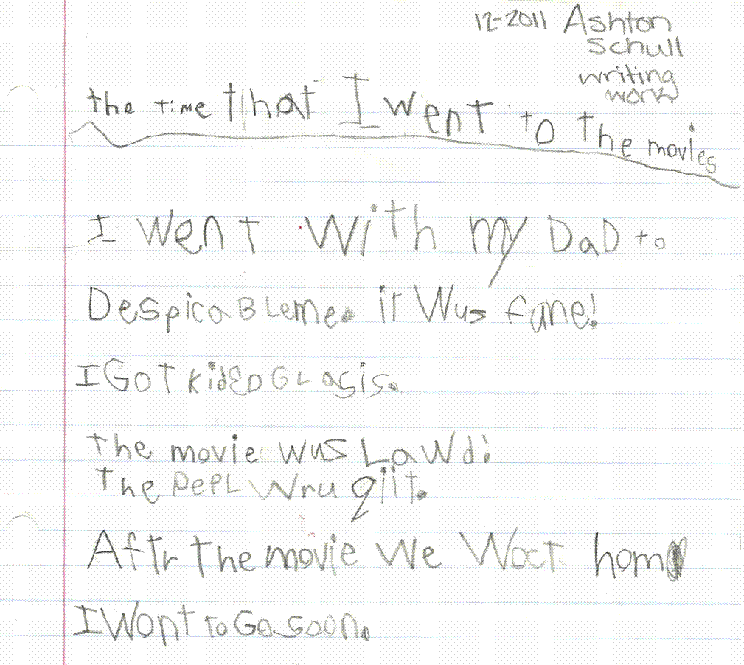 12-2011 Ashton
Schull
writing
work
the time that I went to the movies
I went with my DaD to
DespicaBLeme. it Wus fune!
I GoT kideD GLasis.
The movie wus LaWd!
The pepL Wru qiit.
Aftr The movie We Woct hom
I Wont to Go soon.